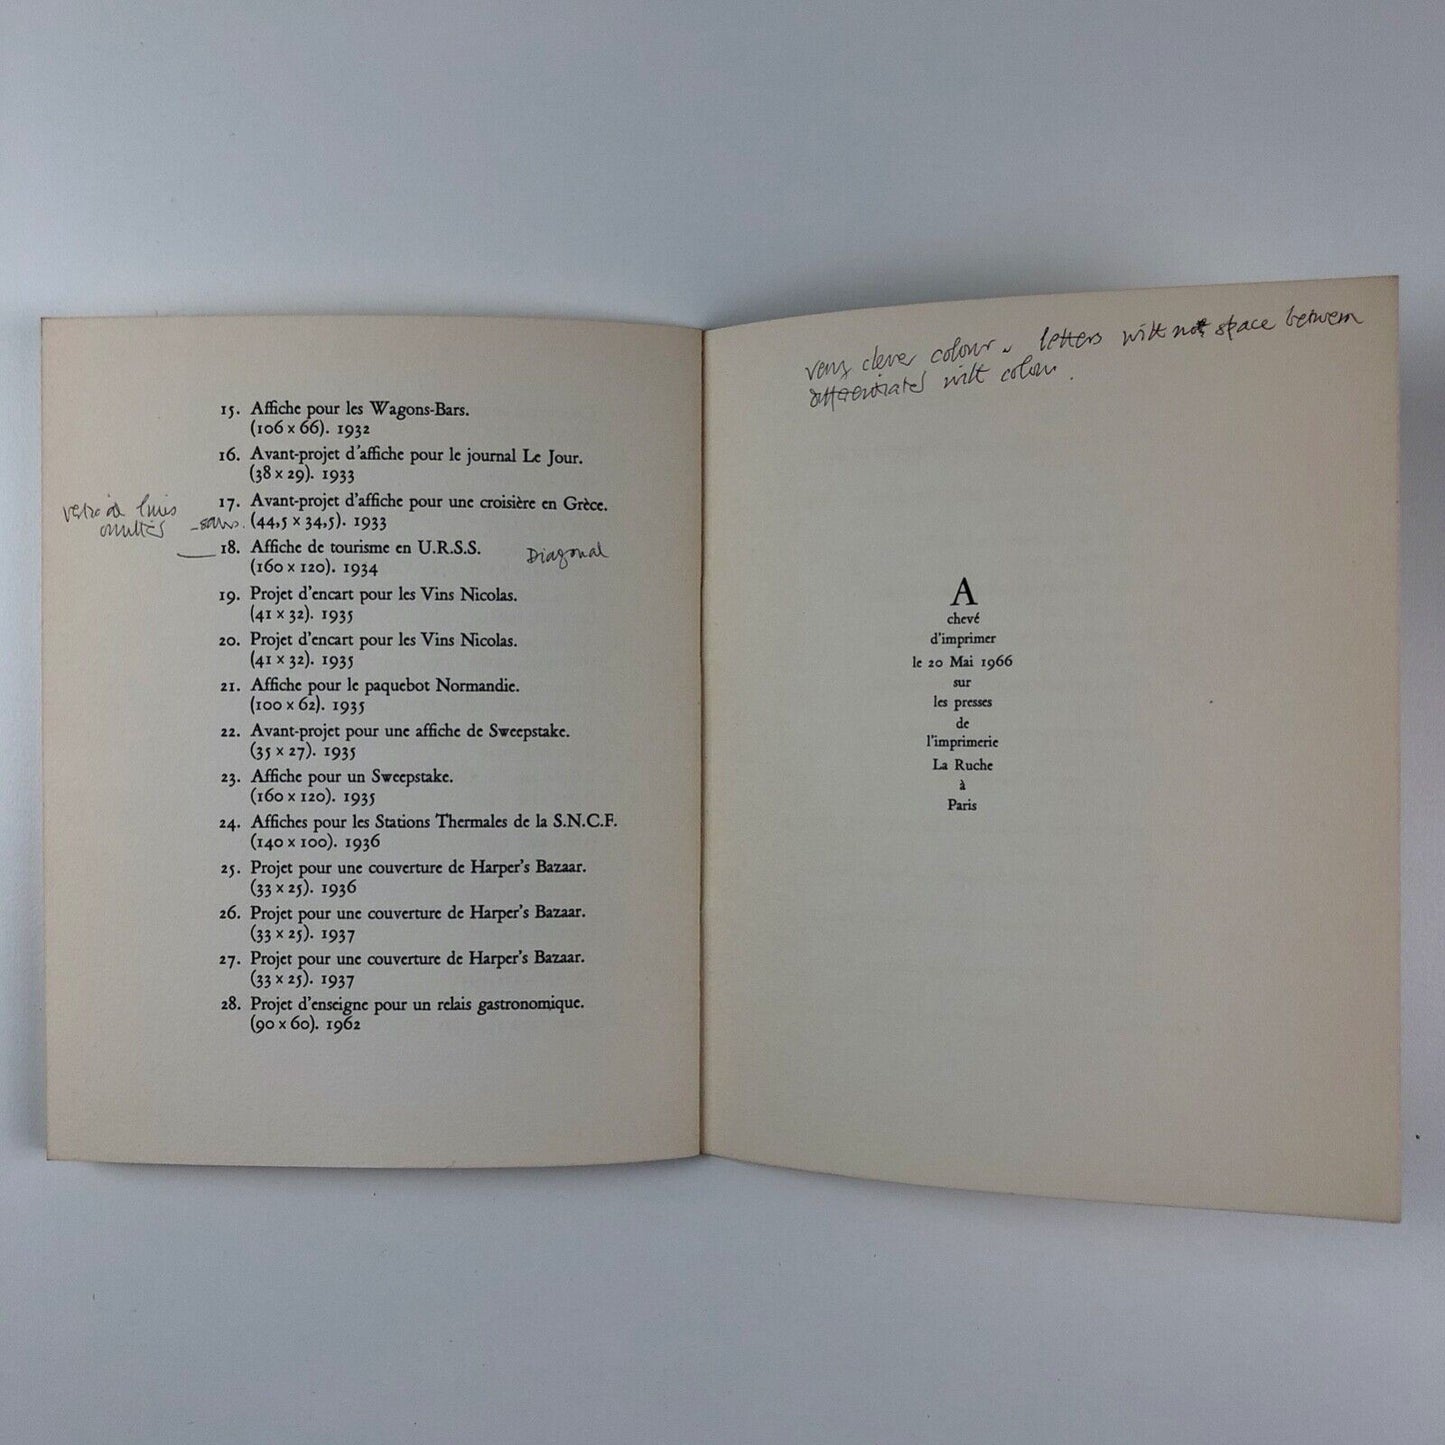 15. Affiche pour les Wagons-Bars.
(106 x 66). 1932
16. Avant-projet d'affiche pour le journal Le Jour.
(38 x 29). 1933
17. Avant-projet d'affiche pour une croisière en Grèce.
(44,5 x 34,5). 1933
omitted
18. Affiche de tourisme en U.R.S.S.
Diagonal
(160 x 120). 1934
19. Projet d'encart pour les Vins Nicolas.
(41 x 32). 1935
20. Projet d'encart pour les Vins Nicolas.
(41 x 32). 1935
21. Affiche pour le paquebot Normandie.
(100 x 62). 1935
22. Avant-projet pour une affiche de Sweepstake.
(35 x 27). 1935
23. Affiche pour un Sweepstake.
(160 x 120). 1935
24. Affiches pour les Stations Thermales de la S.N.C.F.
(140 x 100). 1936
25. Projet pour une couverture de Harper's Bazaar.
(33 x 25). 1936
26. Projet pour une couverture de Harper's Bazaar.
(33 x 25). 1937
27. Projet pour une couverture de Harper's Bazaar.
(33 x 25). 1937
28. Projet d'enseigne pour un relais gastronomique.
(90 x 60). 1962
very clever colour letters with not space between
differentiated with colour.
A
chevé
d'imprimer
le 20 Mai 1966
sur
les presses
de
l'imprimerie
La Ruche
à
Paris